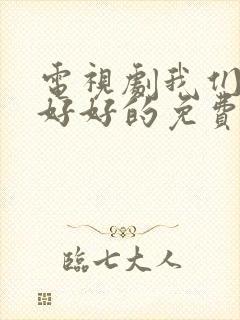 電視劇我们
好好的免費
臨七大人